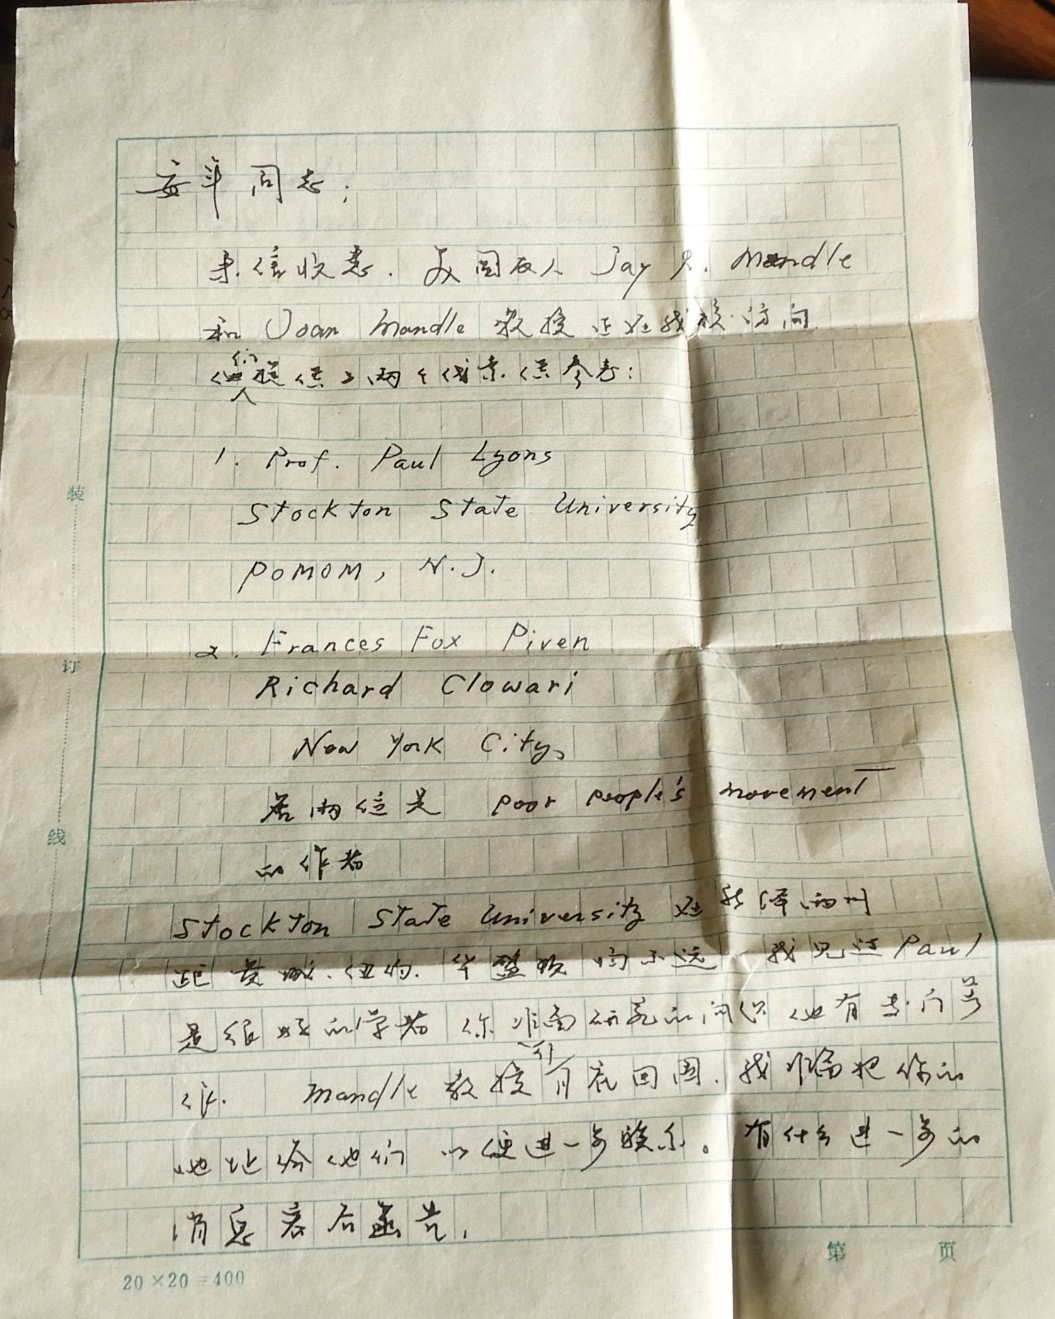 安年同志：
来信收悉. 美国友人 Jay R. Mandle
和 Joan Mandle 教授正在我校访问
他们提供了两个线索供参考：
1. Prof. Paul Lyons
Stockton State University
Pomom, N.J.
2. Frances Fox Piven
Richard Clowari
New York City,
后两位是 Poor people's movement
的作者
Stockton State University 在新泽西州
距费城、纽约、华盛顿均不远 我见过 Paul
是很好的学者 你准备研究的问题他有专门著
作. Mandle 教授 月底回国. 我准备把你的
地址给他们 以便进一步联系。有什么进一步的
消息容后函告.
装
订
线
20×20=400
第 页